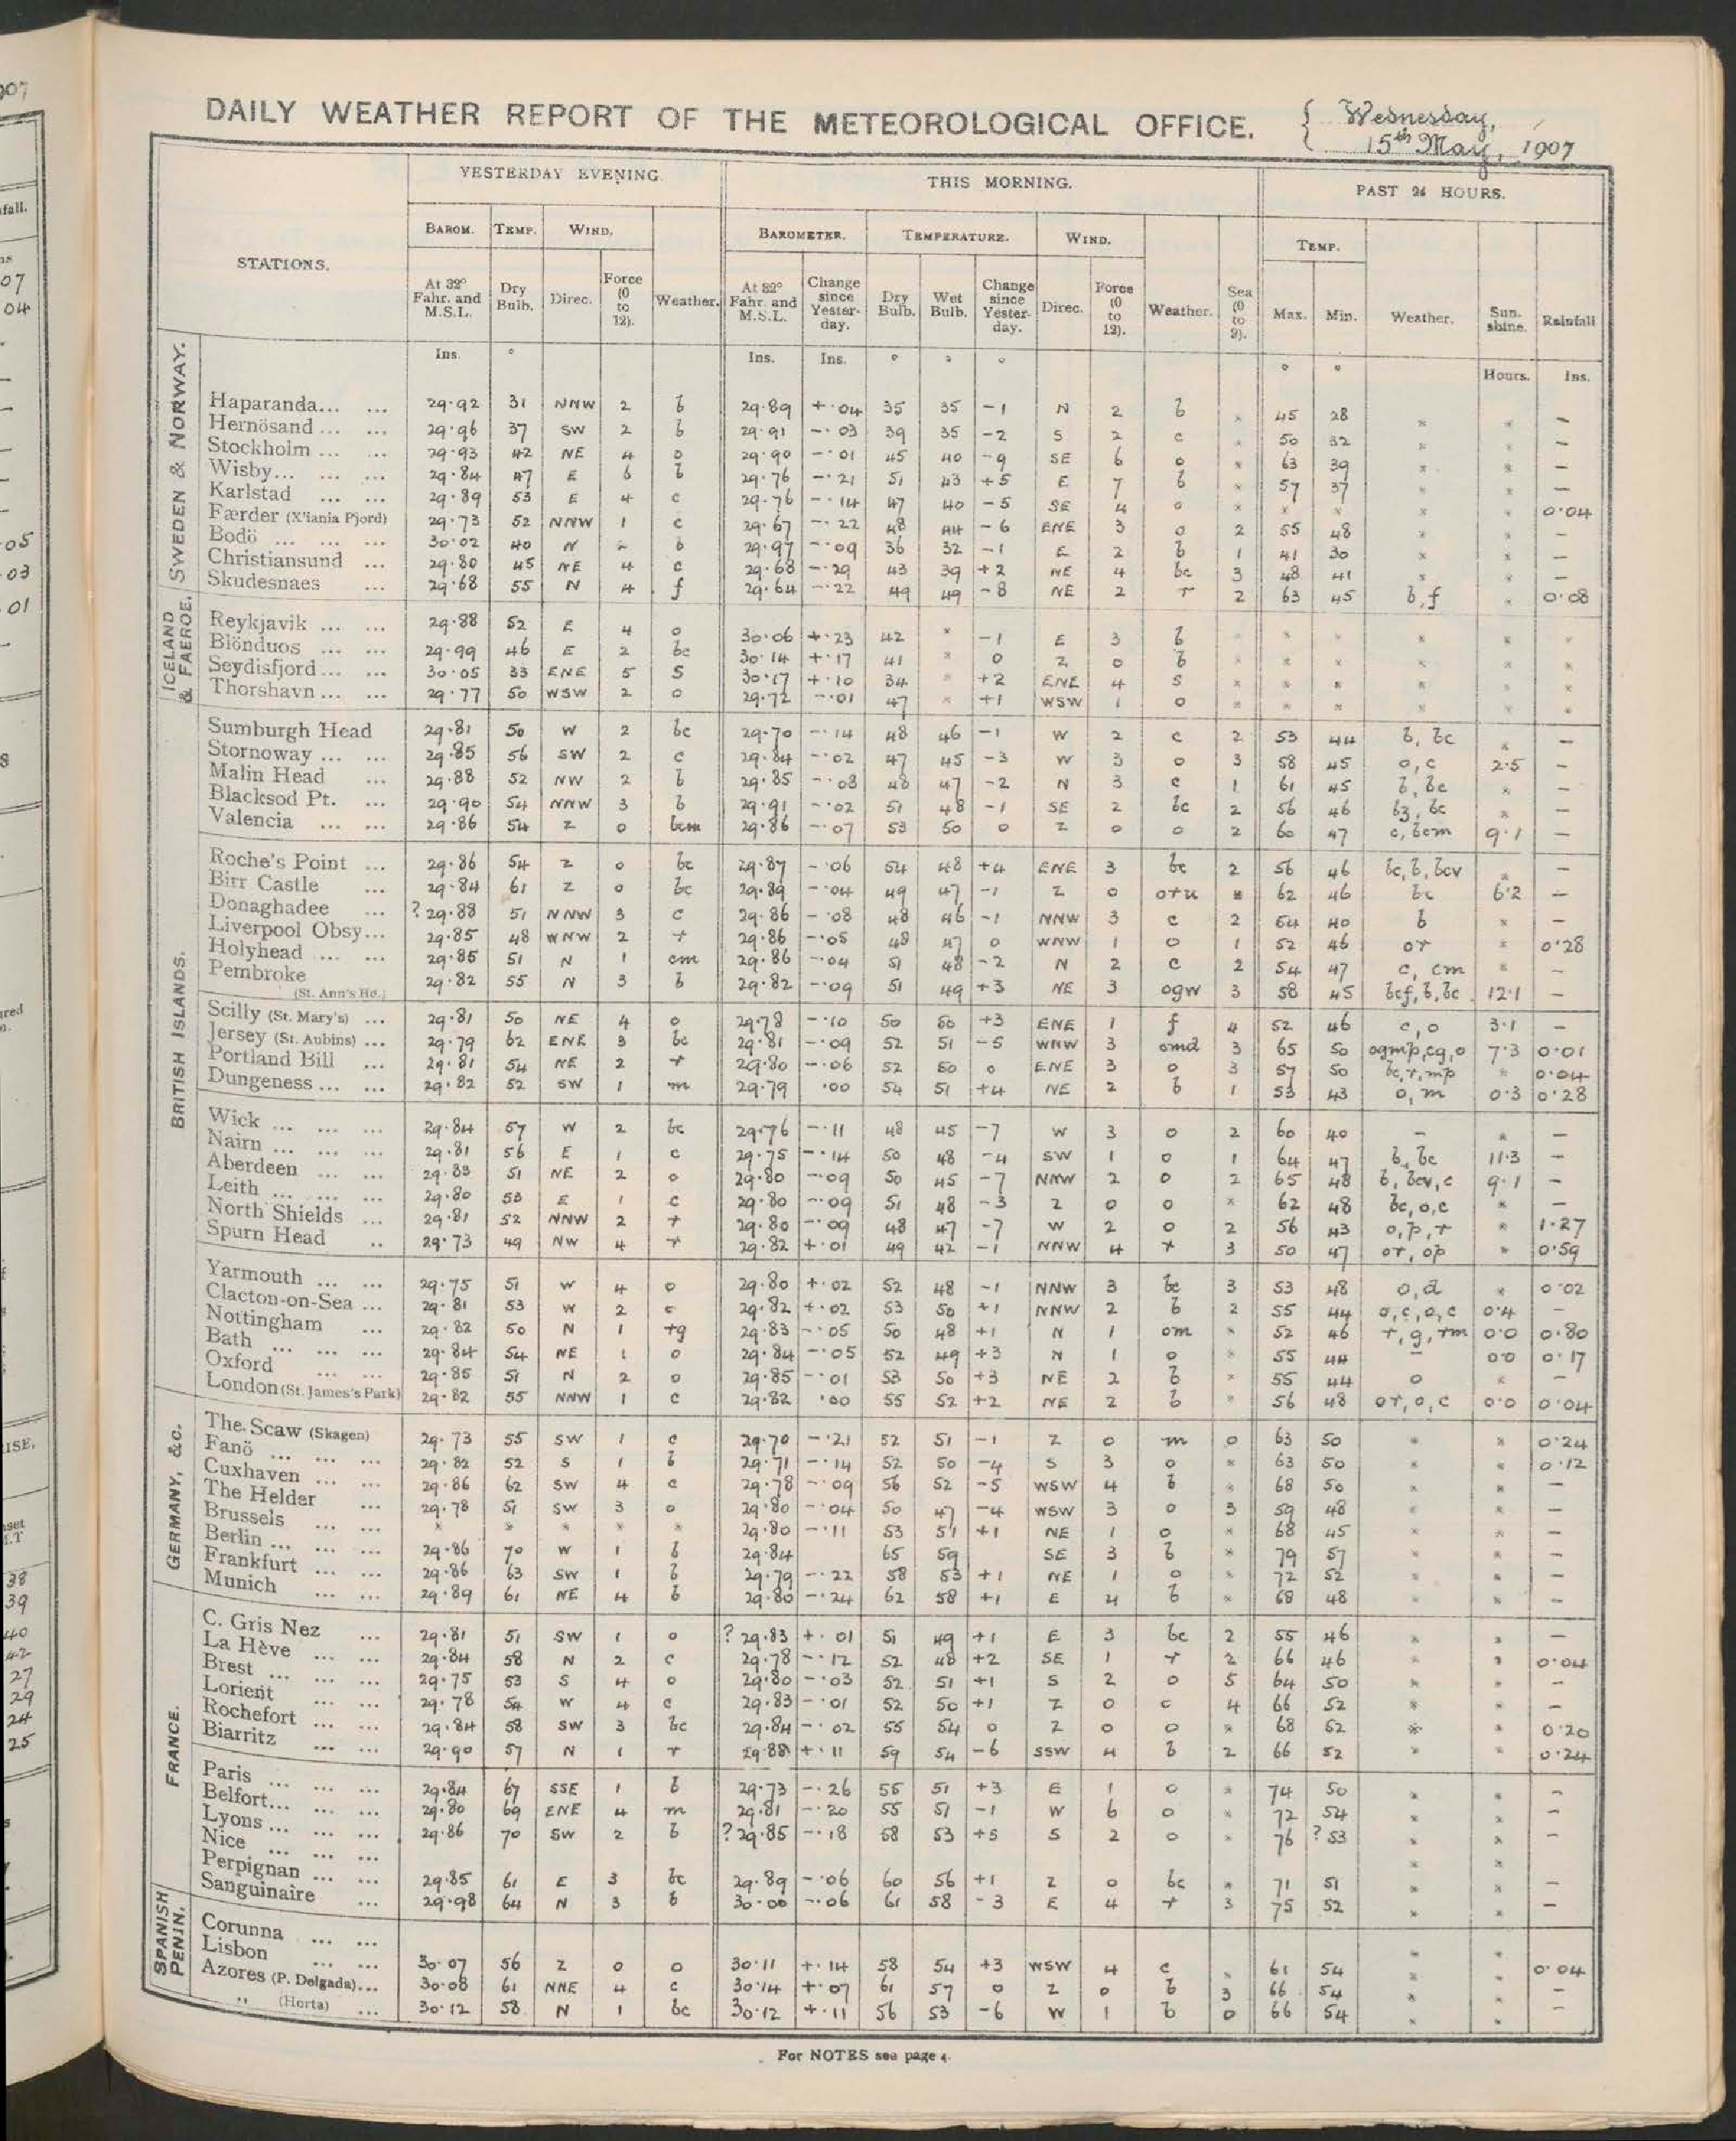 DAILY WEATHER REPORT OF THE METEOROLOGICAL OFFICE. { Wednesday,
15th May, 1907
YESTERDAY EVENING. THIS MORNING. PAST 24 HOURS.
BAROM. TEMP. WIND. BAROMETER. TEMPERATURE. WIND. TEMP.
STATIONS. At 32° Fahr. and M.S.L. Dry Bulb. Direc. Force (0 to 12). Weather. At 32° Fahr. and M.S.L. Change since Yester-day. Dry Bulb. Wet Bulb. Change since Yester-day. Direc. Force (0 to 12). Weather. Sea (0 to 9). Max. Min. Weather. Sun-shine. Rainfall
Ins. ° Ins. Ins. ° ° ° ° ° Hours. Ins.
SWEDEN & NORWAY.
Haparanda... ... 29.92 31 NNW 2 b 29.89 +.04 35 35 -1 N 2 b * 45 28 * * —
Hernösand ... ... 29.96 37 SW 2 b 29.91 -.03 39 35 -2 S 2 c * 50 32 * * —
Stockholm ... ... 29.93 42 NE 4 o 29.90 -.01 45 40 -9 SE 6 o * 63 39 * * —
Wisby... ... ... 29.84 47 E 6 b 29.76 -.21 51 43 +5 E 7 b * 57 37 * * —
Karlstad ... ... 29.89 53 E 4 c 29.76 -.14 47 40 -5 SE 4 o * * * * * 0.04
Færder (X'iania Fjord) 29.73 52 NNW 1 c 29.67 -.22 48 44 -6 ENE 3 o 2 55 48 * * —
Bodö ... ... ... 30.02 40 N 2 b 29.97 -.09 36 32 -1 E 2 b 1 41 30 * * —
Christiansund ... 29.80 45 NE 4 c 29.68 -.29 43 39 +2 NE 4 bc 3 48 41 * * —
Skudesnaes ... 29.68 55 N 4 f 29.64 -.22 49 49 -8 NE 2 r 2 63 45 b,f * 0.08
ICELAND & FAEROE.
Reykjavik ... ... 29.88 52 E 4 o 30.06 +.23 42 * -1 E 3 b * * * * * *
Blönduos ... ... 29.99 46 E 2 bc 30.14 +.17 41 * 0 Z 0 b * * * * * *
Seydisfjord... ... 30.05 33 ENE 5 S 30.17 +.10 34 * +2 ENE 4 s * * * * * *
Thorshavn ... ... 29.77 50 WSW 2 o 29.72 -.01 47 * +1 WSW 1 o * * * * * *
BRITISH ISLANDS.
Sumburgh Head 29.81 50 W 2 bc 29.70 -.14 48 46 -1 W 2 c 2 53 44 b, bc * —
Stornoway ... ... 29.85 56 SW 2 c 29.84 -.02 47 45 -3 W 3 o 3 58 45 o,c 2.5 —
Malin Head ... 29.88 52 NW 2 b 29.85 -.03 48 47 -2 N 3 c 1 61 45 b, bc * —
Blacksod Pt. ... 29.90 54 NNW 3 b 29.91 -.02 51 48 -1 SE 2 bc 2 56 46 bz, bc * —
Valencia ... ... 29.86 54 Z 0 bcm 29.86 -.07 53 50 0 Z 0 o 2 60 47 c, bcm 9.1 —
Roche's Point ... 29.86 54 Z 0 bc 29.87 -.06 54 48 +4 ENE 3 bc 2 56 46 bc, b, bcv * —
Birr Castle ... 29.84 61 Z 0 bc 29.89 -.04 49 47 -1 Z 0 oru * 62 46 bc 6.2 —
Donaghadee ... ? 29.88 51 NNW 3 c 29.86 -.08 48 46 -1 NNW 3 c 2 54 40 b * —
Liverpool Obsy... 29.85 48 WNW 2 r 29.86 -.05 48 47 0 WNW 1 o 1 52 46 or * 0.28
Holyhead ... ... 29.85 51 N 1 cm 29.86 -.04 51 48 -2 N 2 c 2 54 47 c, cm * —
Pembroke (St. Ann's Hd.) 29.82 55 N 3 b 29.82 -.09 51 49 +3 NE 3 ogw 3 58 45 bcf, b, bc 12.1 —
Scilly (St. Mary's) ... 29.81 50 NE 4 o 29.78 -.10 50 50 +3 ENE 1 f 4 52 46 c,o 3.1 —
Jersey (St. Aubins) ... 29.79 62 ENE 3 bc 29.81 -.09 52 51 -5 WNW 3 omd 3 65 50 ogmp,cg,o 7.3 0.01
Portland Bill ... 29.81 54 NE 2 r 29.80 -.06 52 50 0 ENE 3 o 3 57 50 bc,r,mp * 0.04
Dungeness ... ... 29.82 52 SW 1 m 29.79 .00 54 51 +4 NE 2 b 1 53 43 o,m 0.3 0.28
Wick ... ... ... 29.84 57 W 2 bc 29.76 -.11 48 45 -7 W 3 o 2 60 40 — * —
Nairn ... ... ... 29.81 56 E 1 c 29.75 -.14 50 48 -4 SW 1 o 1 64 47 b, bc 11.3 —
Aberdeen ... ... 29.83 51 NE 2 o 29.80 -.09 50 45 -7 NNW 2 o 2 65 48 b, bcv, c 9.1 —
Leith ... ... ... 29.80 53 E 1 c 29.80 -.09 51 48 -3 Z 0 o * 62 48 bc,o,c * —
North Shields ... 29.81 52 NNW 2 r 29.80 -.09 48 47 -7 W 2 o 2 56 43 o,p,r * 1.27
Spurn Head .. 29.73 49 NW 4 r 29.82 +.01 49 42 -1 NNW 4 r 3 50 47 or, op * 0.59
Yarmouth ... ... 29.75 51 W 4 o 29.80 +.02 52 48 -1 NNW 3 bc 3 53 48 o,d * 0.02
Clacton-on-Sea ... 29.81 53 W 2 c 29.82 +.02 53 50 +1 NNW 2 b 2 55 44 o,c,o,c 0.4 —
Nottingham ... 29.82 50 N 1 rg 29.83 -.05 50 48 +1 N 1 om * 52 46 r,g,rm 0.0 0.80
Bath ... ... ... 29.84 54 NE 1 o 29.84 -.05 52 49 +3 N 1 o * 55 44 — 0.0 0.17
Oxford ... ... 29.85 51 N 2 o 29.85 -.01 53 50 +3 NE 2 b * 55 44 o * —
London (St. James's Park) 29.82 55 NNW 1 c 29.82 .00 55 52 +2 NE 2 b * 56 48 or, o, c 0.0 0.04
GERMANY, &c.
The Scaw (Skagen) 29.73 55 SW 1 c 29.70 -.21 52 51 -1 Z 0 m 0 63 50 * * 0.24
Fanö ... ... ... 29.82 52 S 1 b 29.71 -.14 52 50 -4 S 3 o * 63 50 * * 0.12
Cuxhaven ... ... 29.86 62 SW 4 c 29.78 -.09 56 52 -5 WSW 4 b * 68 50 * * —
The Helder ... 29.78 51 SW 3 o 29.80 -.04 50 47 -4 WSW 3 o 3 59 48 * * —
Brussels ... ... * * * * * 29.80 -.11 53 51 +1 NE 1 o * 68 45 * * —
Berlin ... ... ... 29.86 70 W 1 b 29.84 65 59 SE 3 b * 79 57 * * —
Frankfurt ... ... 29.86 63 SW 1 b 29.79 -.22 58 53 +1 NE 1 o * 72 52 * * —
Munich ... ... 29.89 61 NE 4 b 29.80 -.24 62 58 +1 E 4 b * 68 48 * * —
FRANCE.
C. Gris Nez ... 29.81 51 SW 1 o ? 29.83 +.01 51 49 +1 E 3 bc 2 55 46 * * —
La Hève ... ... 29.84 58 N 2 c 29.78 -.12 52 48 +2 SE 1 r 2 66 46 * * 0.04
Brest ... ... ... 29.75 53 S 4 o 29.80 -.03 52 51 +1 S 2 o 5 64 50 * * —
Lorient ... ... 29.78 54 W 4 c 29.83 -.01 52 50 +1 Z 0 c 4 66 52 * * —
Rochefort ... ... 29.84 58 SW 3 bc 29.84 -.02 55 54 0 Z 0 o * 68 52 * * 0.20
Biarritz ... ... 29.90 57 N 1 r 29.88 +.11 59 54 -6 SSW 4 b 2 66 52 * * 0.24
Paris ... ... ... 29.84 67 SSE 1 b 29.73 -.26 55 51 +3 E 1 o * 74 50 * * —
Belfort... ... ... 29.80 69 ENE 4 m 29.81 -.20 55 51 -1 W 6 o * 72 54 * * —
Lyons ... ... ... 29.86 70 SW 2 b ? 29.85 -.18 58 53 +5 S 2 o * 76 ? 53 * * —
Nice ... ... ... * *
Perpignan ... ... 29.85 61 E 3 bc 29.89 -.06 60 56 +1 Z 0 bc * 71 51 * * —
Sanguinaire ... 29.98 64 N 3 b 30.00 -.06 61 58 -3 E 4 r 3 75 52 * * —
SPANISH PENIN.
Corunna ... ... * *
Lisbon ... ... 30.07 56 Z 0 o 30.11 +.14 58 54 +3 WSW 4 c * 61 54 * * 0.04
Azores (P. Delgada)... 30.08 61 NNE 4 c 30.14 +.07 61 57 0 Z 0 b 3 66 54 * * —
" (Horta) ... 30.12 58 N 1 bc 30.12 +.11 56 53 -6 W 1 b 0 66 54 * * —
For NOTES see page 4.